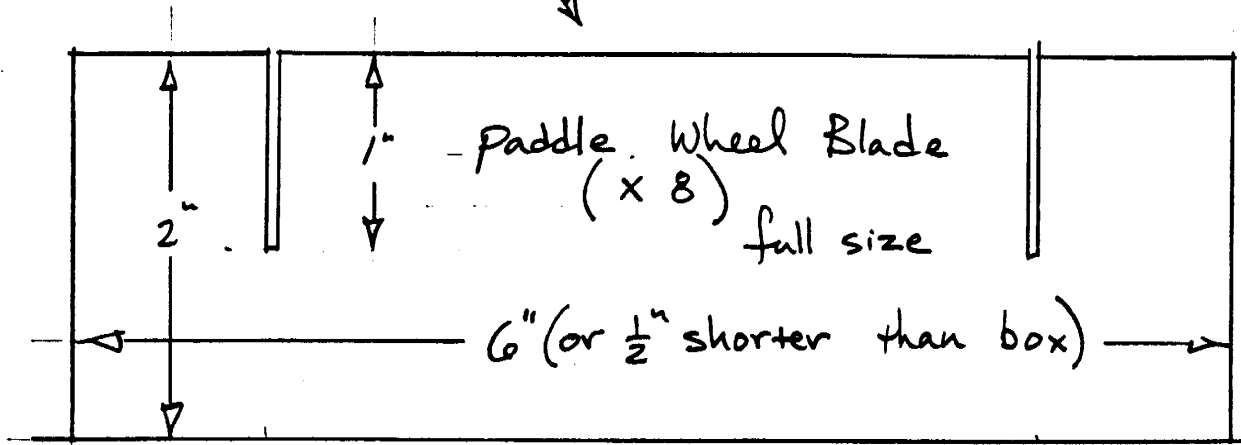 1"
Paddle Wheel Blade
(x 8)
2"
full size
6" (or ½" shorter than box)